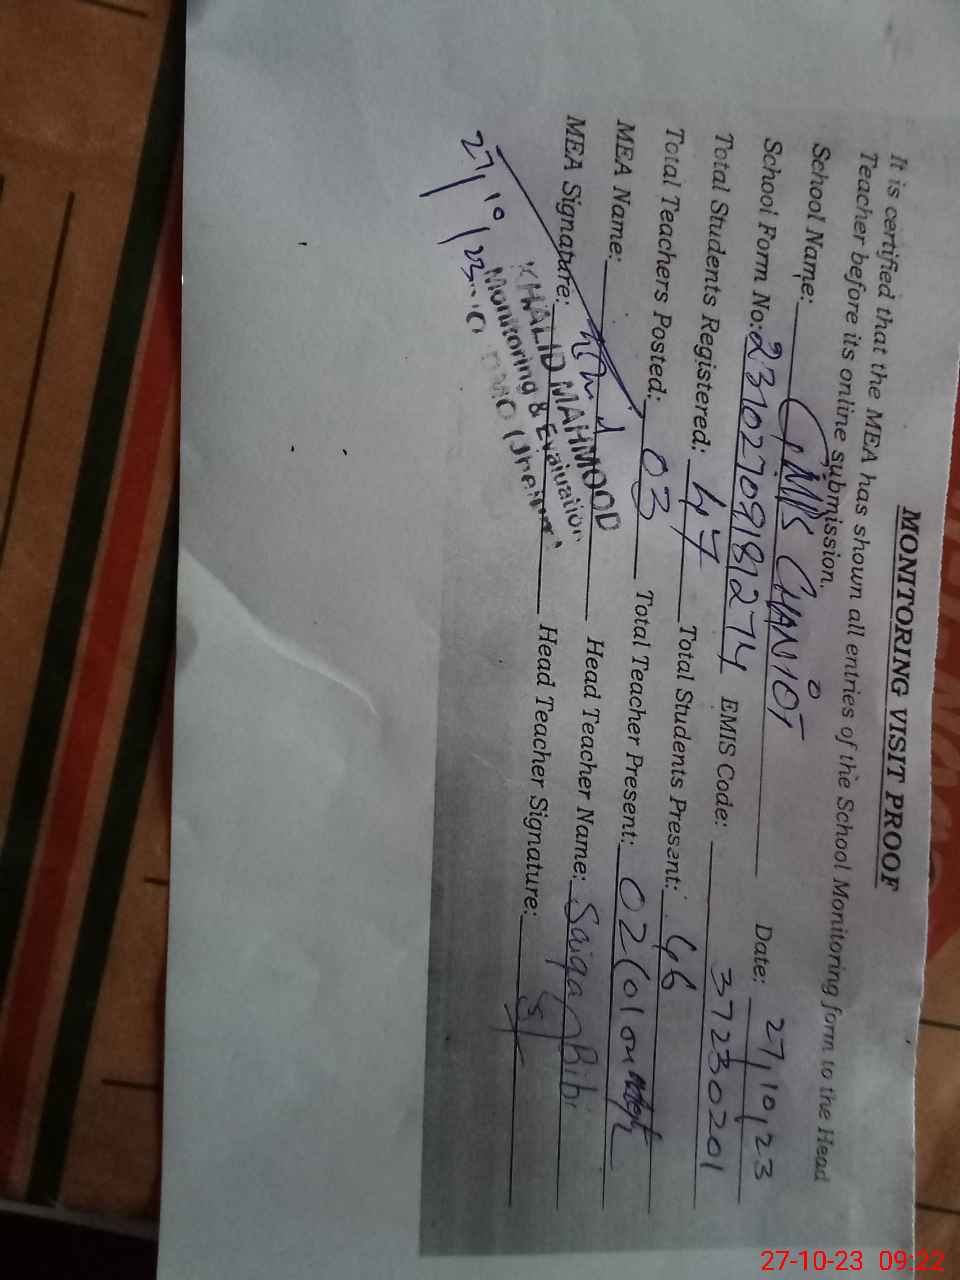 MONITORING VISIT PROOF
It is certified that the MEA has shown all entries of the School Monitoring form to the Head
Teacher before its online submission.
School Name: GMPS CHANIOT Date: 27/10/23
School Form No: 23102709181274 EMIS Code: 37230201
Total Students Registered: 47 Total Students Present: 46
Total Teachers Posted: 03 Total Teacher Present: 02 (01 on
MEA Name: Head Teacher Name: Saiqa Bibi
MEA Signature: Head Teacher Signature:
KHALID MAHMOOD
Monitoring & Evaluation
27/10/23
27-10-23 09:22